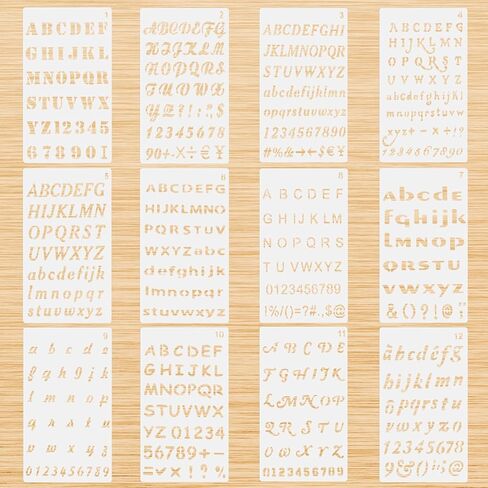 1
ABCDEF
GHIJKL
MNOPQR
STUVWX
YZ12345
678901
2
ABCDEFG
HIJKLM
NOPQRS
TUVWX
YZ?!:;,$
12345678
90+-×÷€¥
3
ABCDEFGHI
JKLMNOPQR
STUVWXYZ
abcdefghijk
lmnopqrs
tuvwxyz
1234567890
4
ABCDEFG
HIJKLMN
OPQRST
UVWXYZ
abcdefghijkl
mnopqrstuvw
xyz+-×÷!?
1234567890
5
ABCDEFG
HIJKLMN
OPQRST
UVWXYZ
abcdefghijk
lmnopqr
stuvwxyz
6
ABCDEFG
HIJKLMNO
PQRSTUV
WXYZabc
defghijk
lmnopqr
stuvwxyz
8
ABCDEF
GHIJKL
MNOPQR
STUVWXYZ
0123456789
7
abcde
fghijk
lmnop
qrstu
vwxyz
9
a b c d e
f g h i j k
l m n o p
q r s t u
v w x y z
0123456789
10
ABCDEF
GHIJKL
MNOPQR
STUVWX
YZ01234
56789+-
=✓×!?%
11
ABCDE
FGHIJK
LMNOP
QRSTU
VWXYZ
0123456789
12
abcdefg
hijklmn
opqrstu
vwxyz
12345678